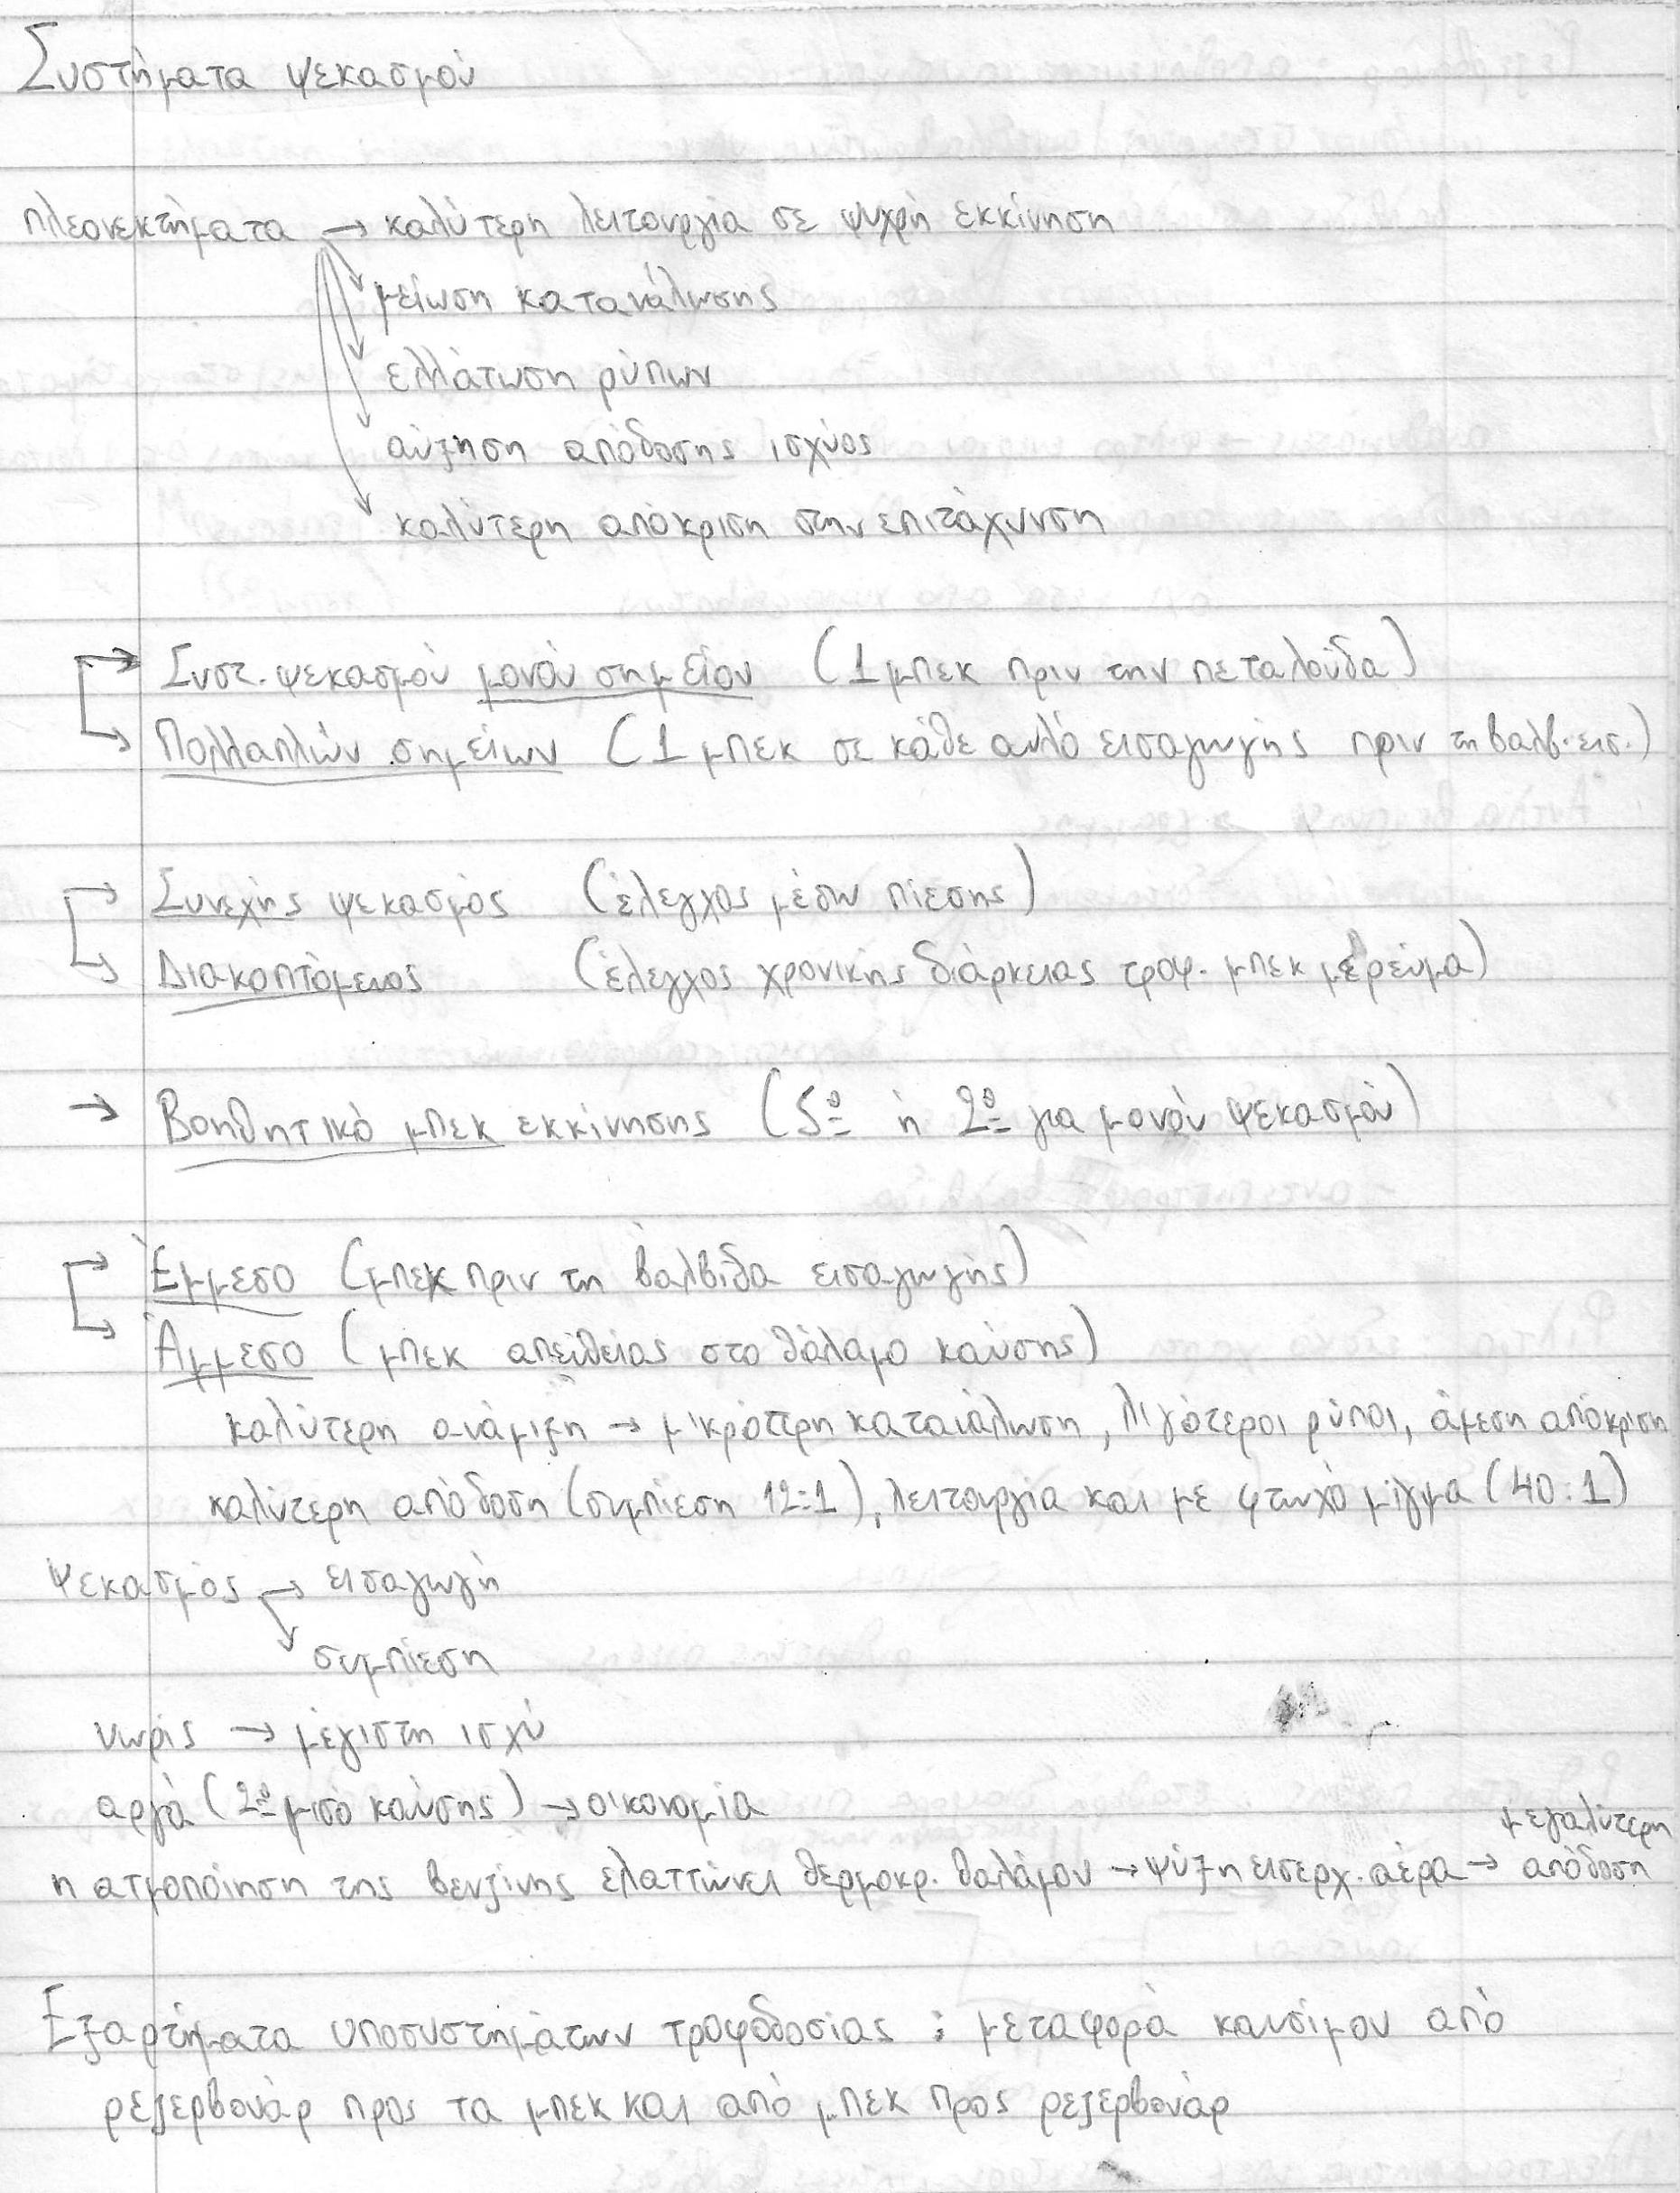 Συστήματα ψεκασμού
πλεονεκτήματα → καλύτερη λειτουργία σε ψυχρή εκκίνηση
μείωση κατανάλωσης
ελλάτωση ρύπων
αύξηση απόδοσης ισχύος
καλύτερη απόκριση στην επιτάχυνση
→ Συστ. ψεκασμού μονού σημείου (1 μπεκ πριν την πεταλούδα)
→ Πολλαπλών σημείων (1 μπεκ σε κάθε αυλό εισαγωγής πριν τη βαλβ. εισ.)
→ Συνεχής ψεκασμός (έλεγχος μέσω πίεσης)
→ Διακοπτόμενος (έλεγχος χρονικής διάρκειας τροφ. μπεκ με ρεύμα)
→ Βοηθητικό μπεκ εκκίνησης (5º ή 2º για μονού ψεκασμού)
→ Έμμεσο (μπεκ πριν τη βαλβίδα εισαγωγής)
→ Άμμεσο (μπεκ απείθείας στο θάλαμο καύσης)
καλύτερη ανάμιξη → μικρότερη κατανάλωση, λιγότεροι ρύποι, άμεση απόκριση
καλύτερη απόδοση (συμπίεση 12:1), λειτουργία και με φτωχό μίγμα (40:1)
Ψεκασμός → εισαγωγή
συμπίεση
νωρίς → μέγιστη ισχύ
αργά (2º μισό καύσης) → οικονομία
η ατμοποίηση της βενζίνης ελαττώνει θερμοκρ. θαλάμου → ψύξη εισερχ. αέρα → μεγαλύτερη απόδοση
Εξαρτήματα υποσυστημάτων τροφοδοσίας : μεταφορά καυσίμου από
ρεζερβουάρ προς τα μπεκ και από μπεκ προς ρεζερβουάρ